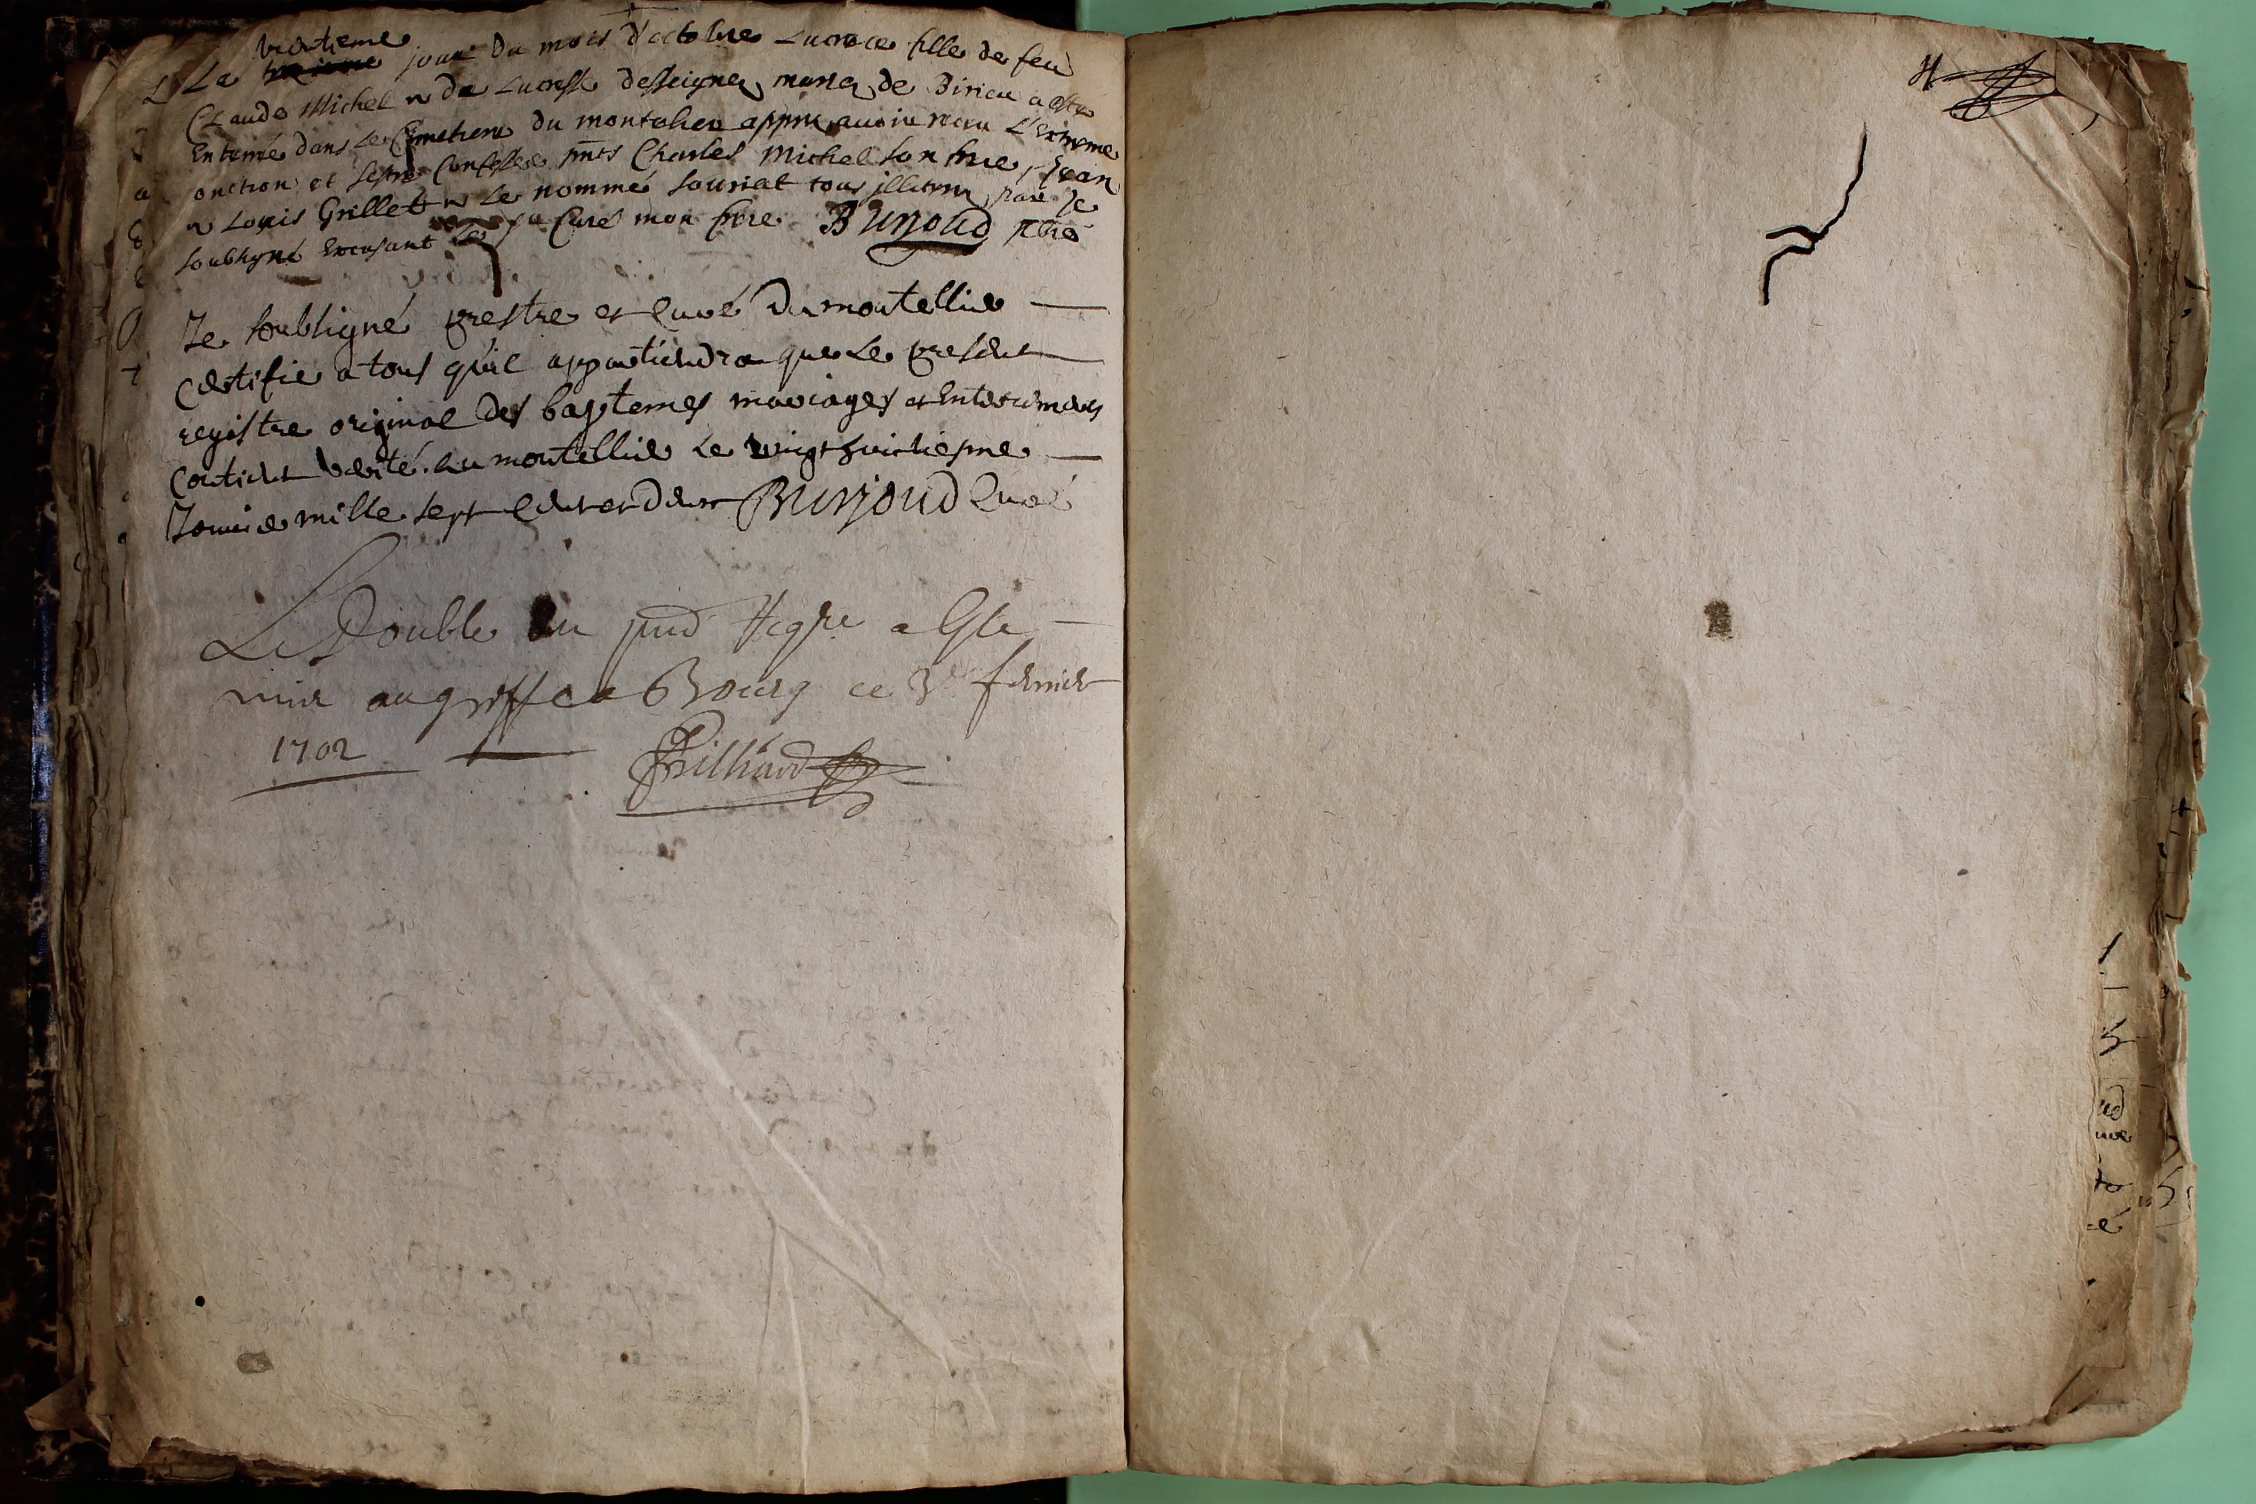 vintieme
Le jour du mois d'octobre Lucrece fille de feu
Claude Michel & de Lucresse desseigne, de Birieu a esté
Enterrée dans le Cimetiere du montelier appres avoir receu L'extreme
onction et s'estre Confessée pnts Charles Michel son frere, Jean
& Louis Grillet & le nommé souriat tous illiteres, par Je
soubsigné Excusant Curé mon frere Burjoud ptre
Je soubsigné prestre et curé du montellier
certifie a tous qu'il appartiendra que le present
registre original des baptemes mariages et Enterrements
contient verité. au montellier le vingt huictiesme
Janvier mille sept cent et deux Burjoud Curé
Le Double du pnt Regre a este
mis au greffe a Bourg ce 3e febvrier
1702